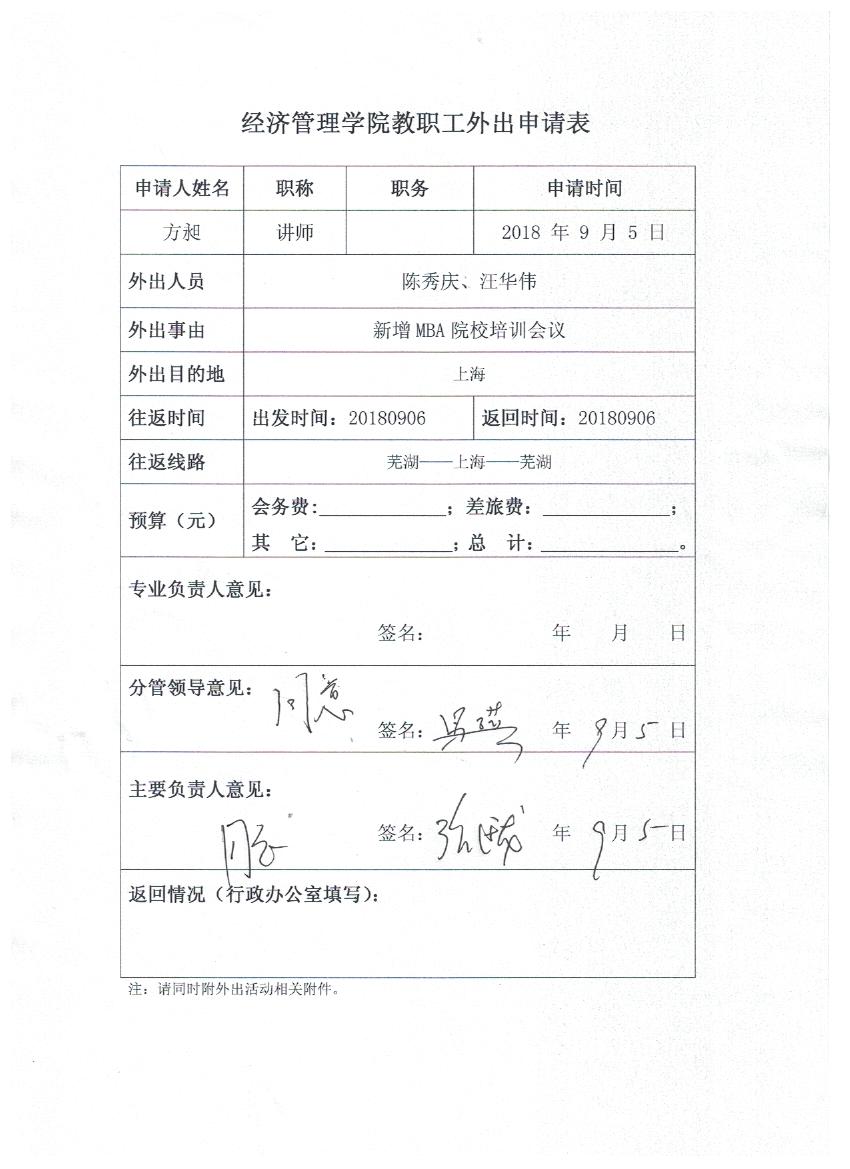 经济管理学院教职工外出申请表
申请人姓名 职称 职务 申请时间
方昶 讲师 2018 年 9 月 5 日
外出人员 陈秀庆、汪华伟
外出事由 新增MBA 院校培训会议
外出目的地 上海
往返时间 出发时间：20180906 返回时间：20180906
往返线路 芜湖——上海——芜湖
预算（元） 会务费:____________；差旅费：____________；
其 它：____________；总 计：_____________。
专业负责人意见：
签名： 年 月 日
分管领导意见： 同意
签名： 年 9 月 5 日
主要负责人意见：
同意
签名： 年 9 月 5 日
返回情况（行政办公室填写）：
注：请同时附外出活动相关附件。